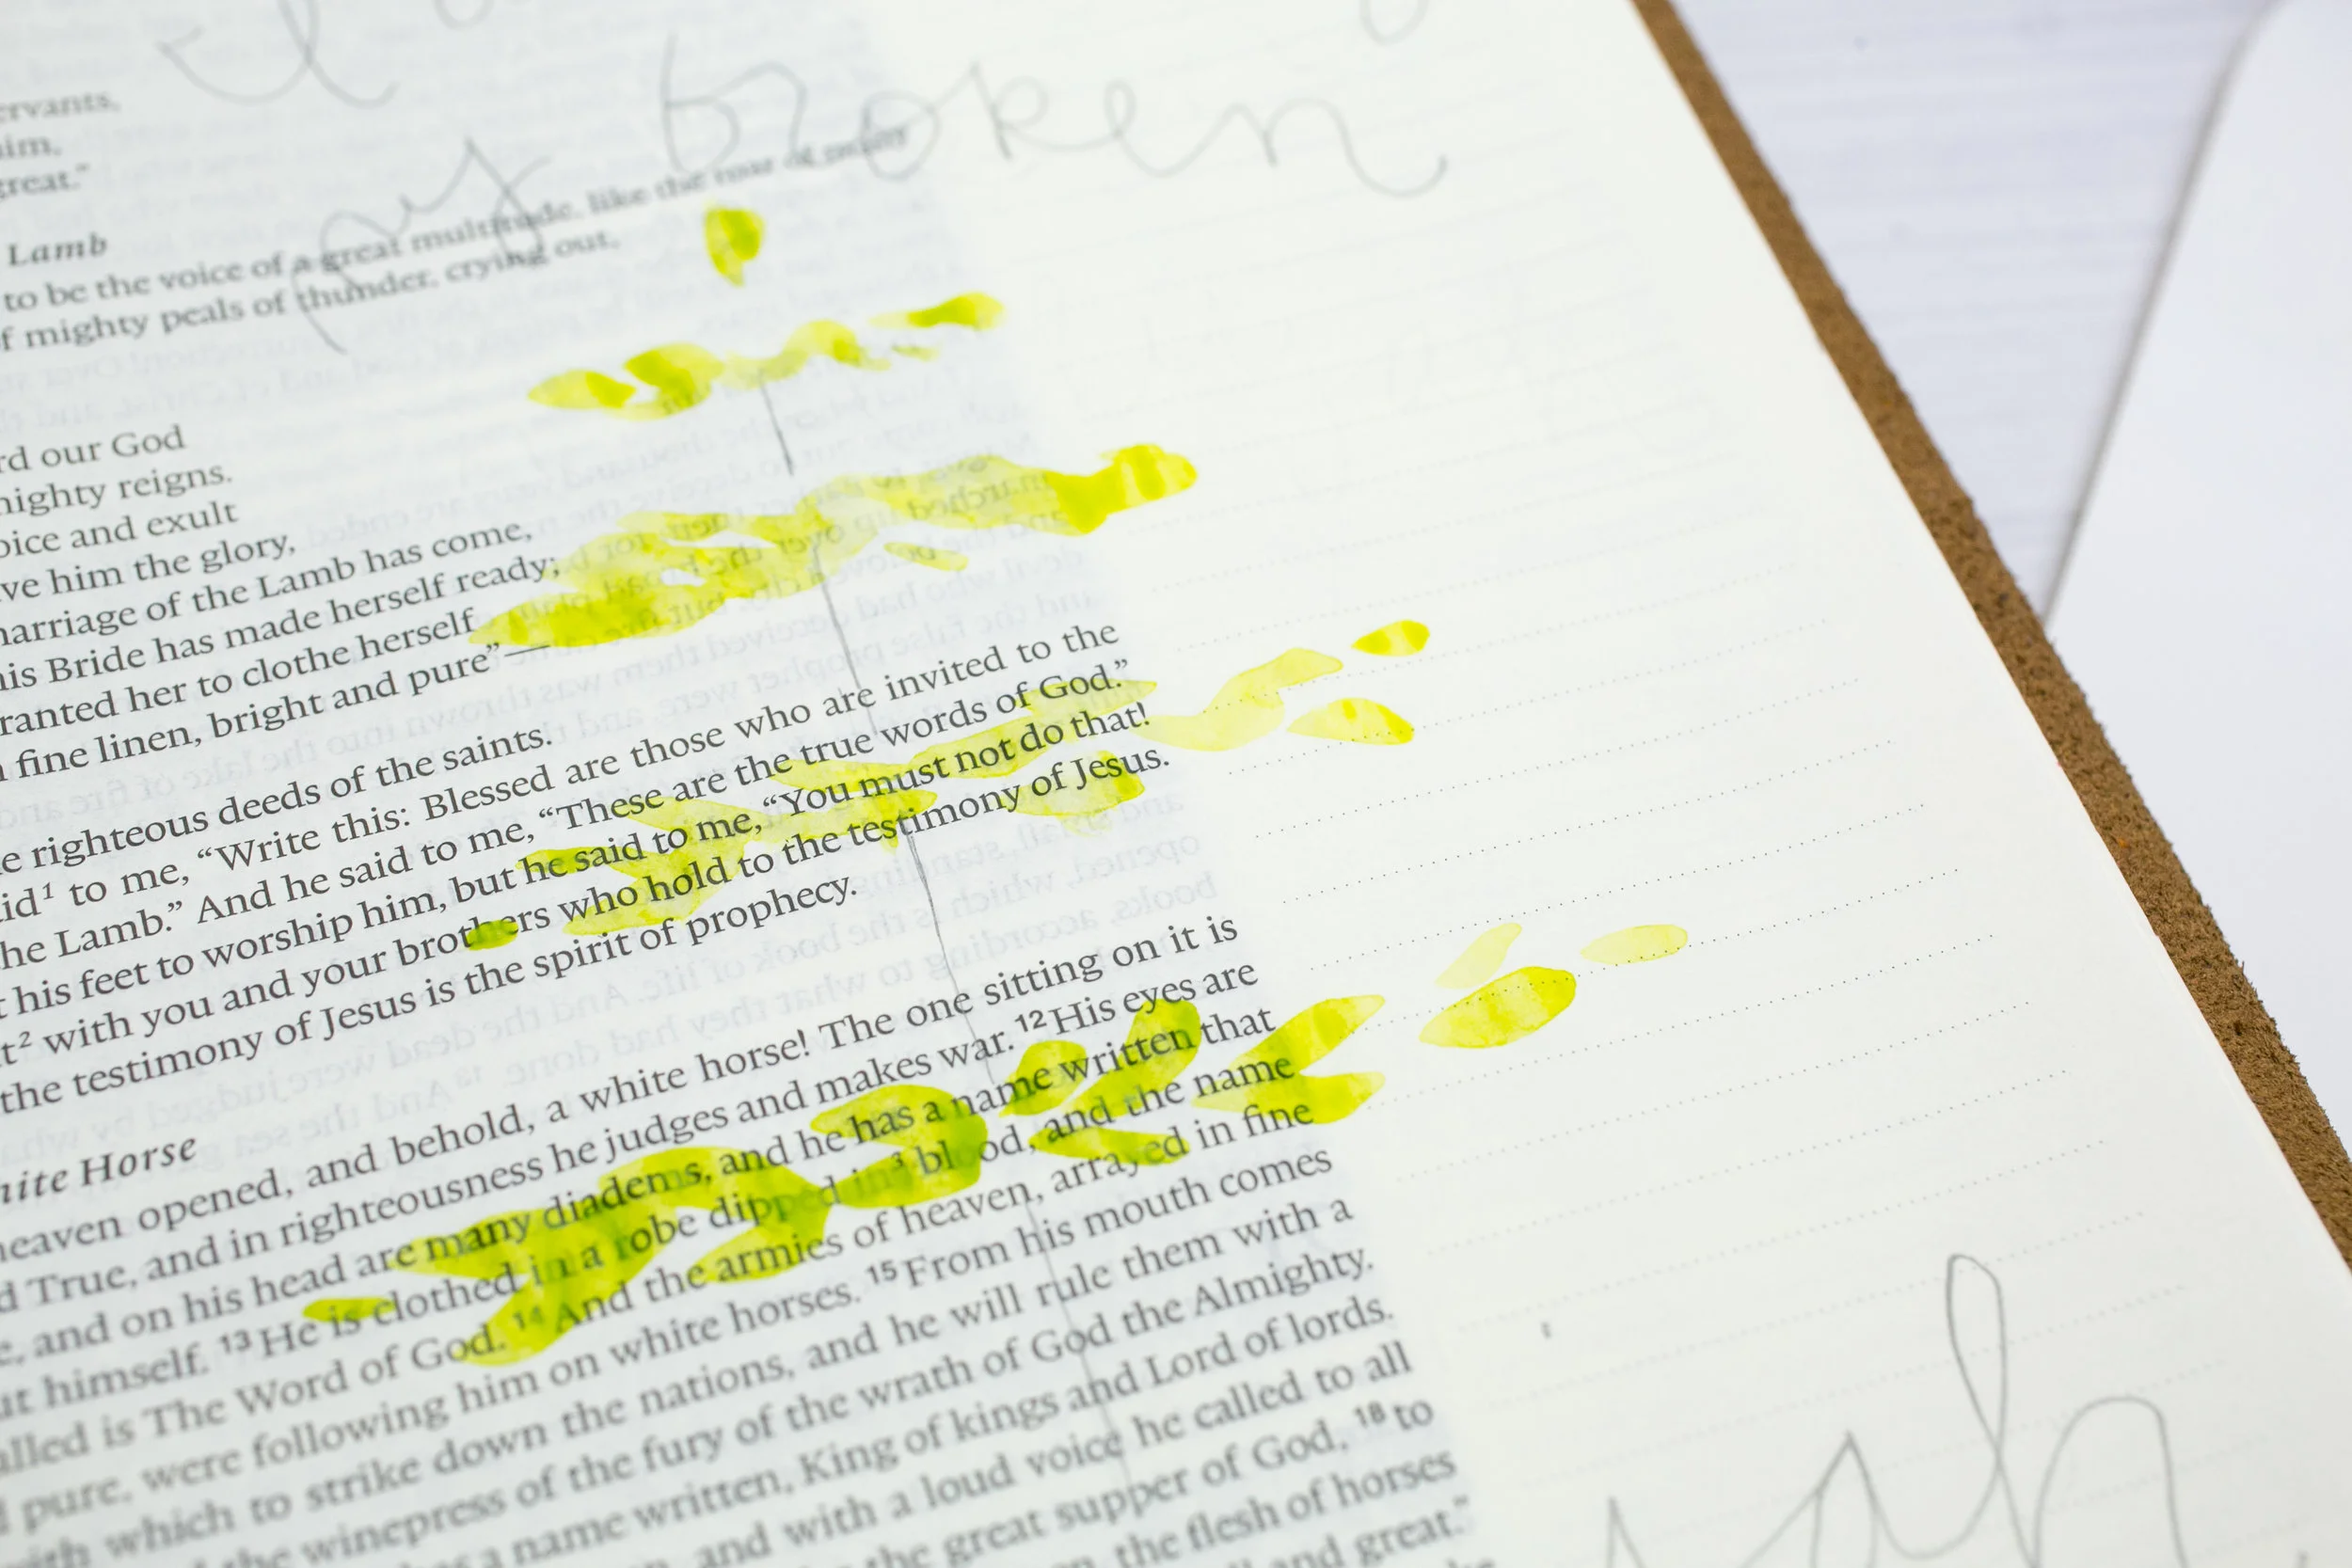 my broken
ervants,
him,
great."
Lamb
to be the voice of a great multitude, like the roar of many
of mighty peals of thunder, crying out,
rd our God
mighty reigns.
oice and exult
ve him the glory,
marriage of the Lamb has come,
his Bride has made herself ready;
ranted her to clothe herself
fine linen, bright and pure”—
e righteous deeds of the saints.
id¹ to me, “Write this: Blessed are those who are invited to the
he Lamb.” And he said to me, “These are the true words of God.”
t his feet to worship him, but he said to me, “You must not do that!
t² with you and your brothers who hold to the testimony of Jesus.
the testimony of Jesus is the spirit of prophecy.
hite Horse
heaven opened, and behold, a white horse! The one sitting on it is
d True, and in righteousness he judges and makes war. 12 His eyes are
e, and on his head are many diadems, and he has a name written that
ut himself. 13 He is clothed in a robe dipped in³ blood, and the name
alled is The Word of God. 14 And the armies of heaven, arrayed in fine
d pure, were following him on white horses. 15 From his mouth comes
with which to strike down the nations, and he will rule them with a
the winepress of the fury of the wrath of God the Almighty.
a name written, King of kings and Lord of lords.
and with a loud voice he called to all
the great supper of God, 18 to
the flesh of horses
and great.”